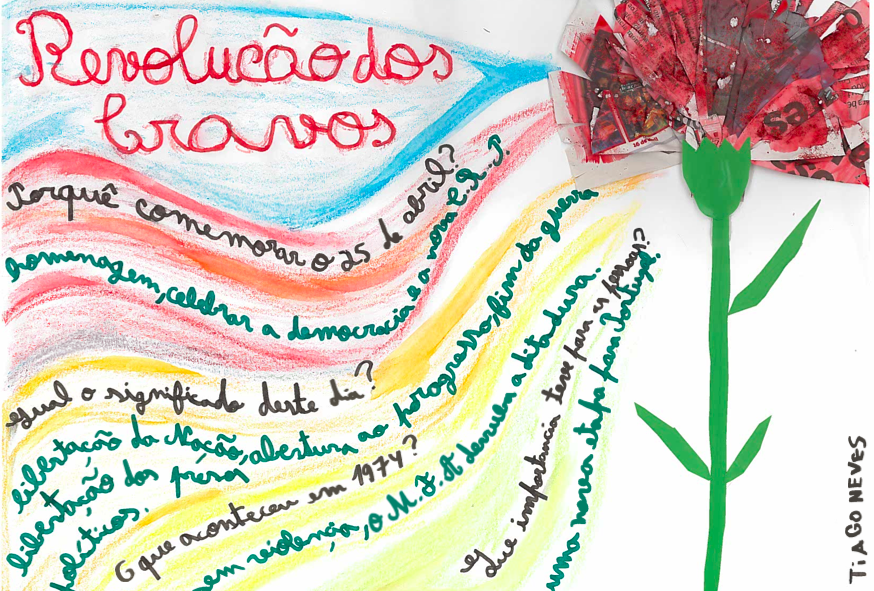 Revolução dos
Cravos
Porquê comemorar o 25 de abril?
Homenagem, celebrar a democracia e a nova C.R.P.
Qual o significado deste dia?
libertação da Nação, abertura ao porogresso, fim da guerra
libertação dos presos
políticos.
O que aconteceu em 1974?
sem violência, o M.F.A derruba a ditadura.
Que importancia teve para as pessoas?
uma nova etapa para Portugal.
TiAGO NEVES